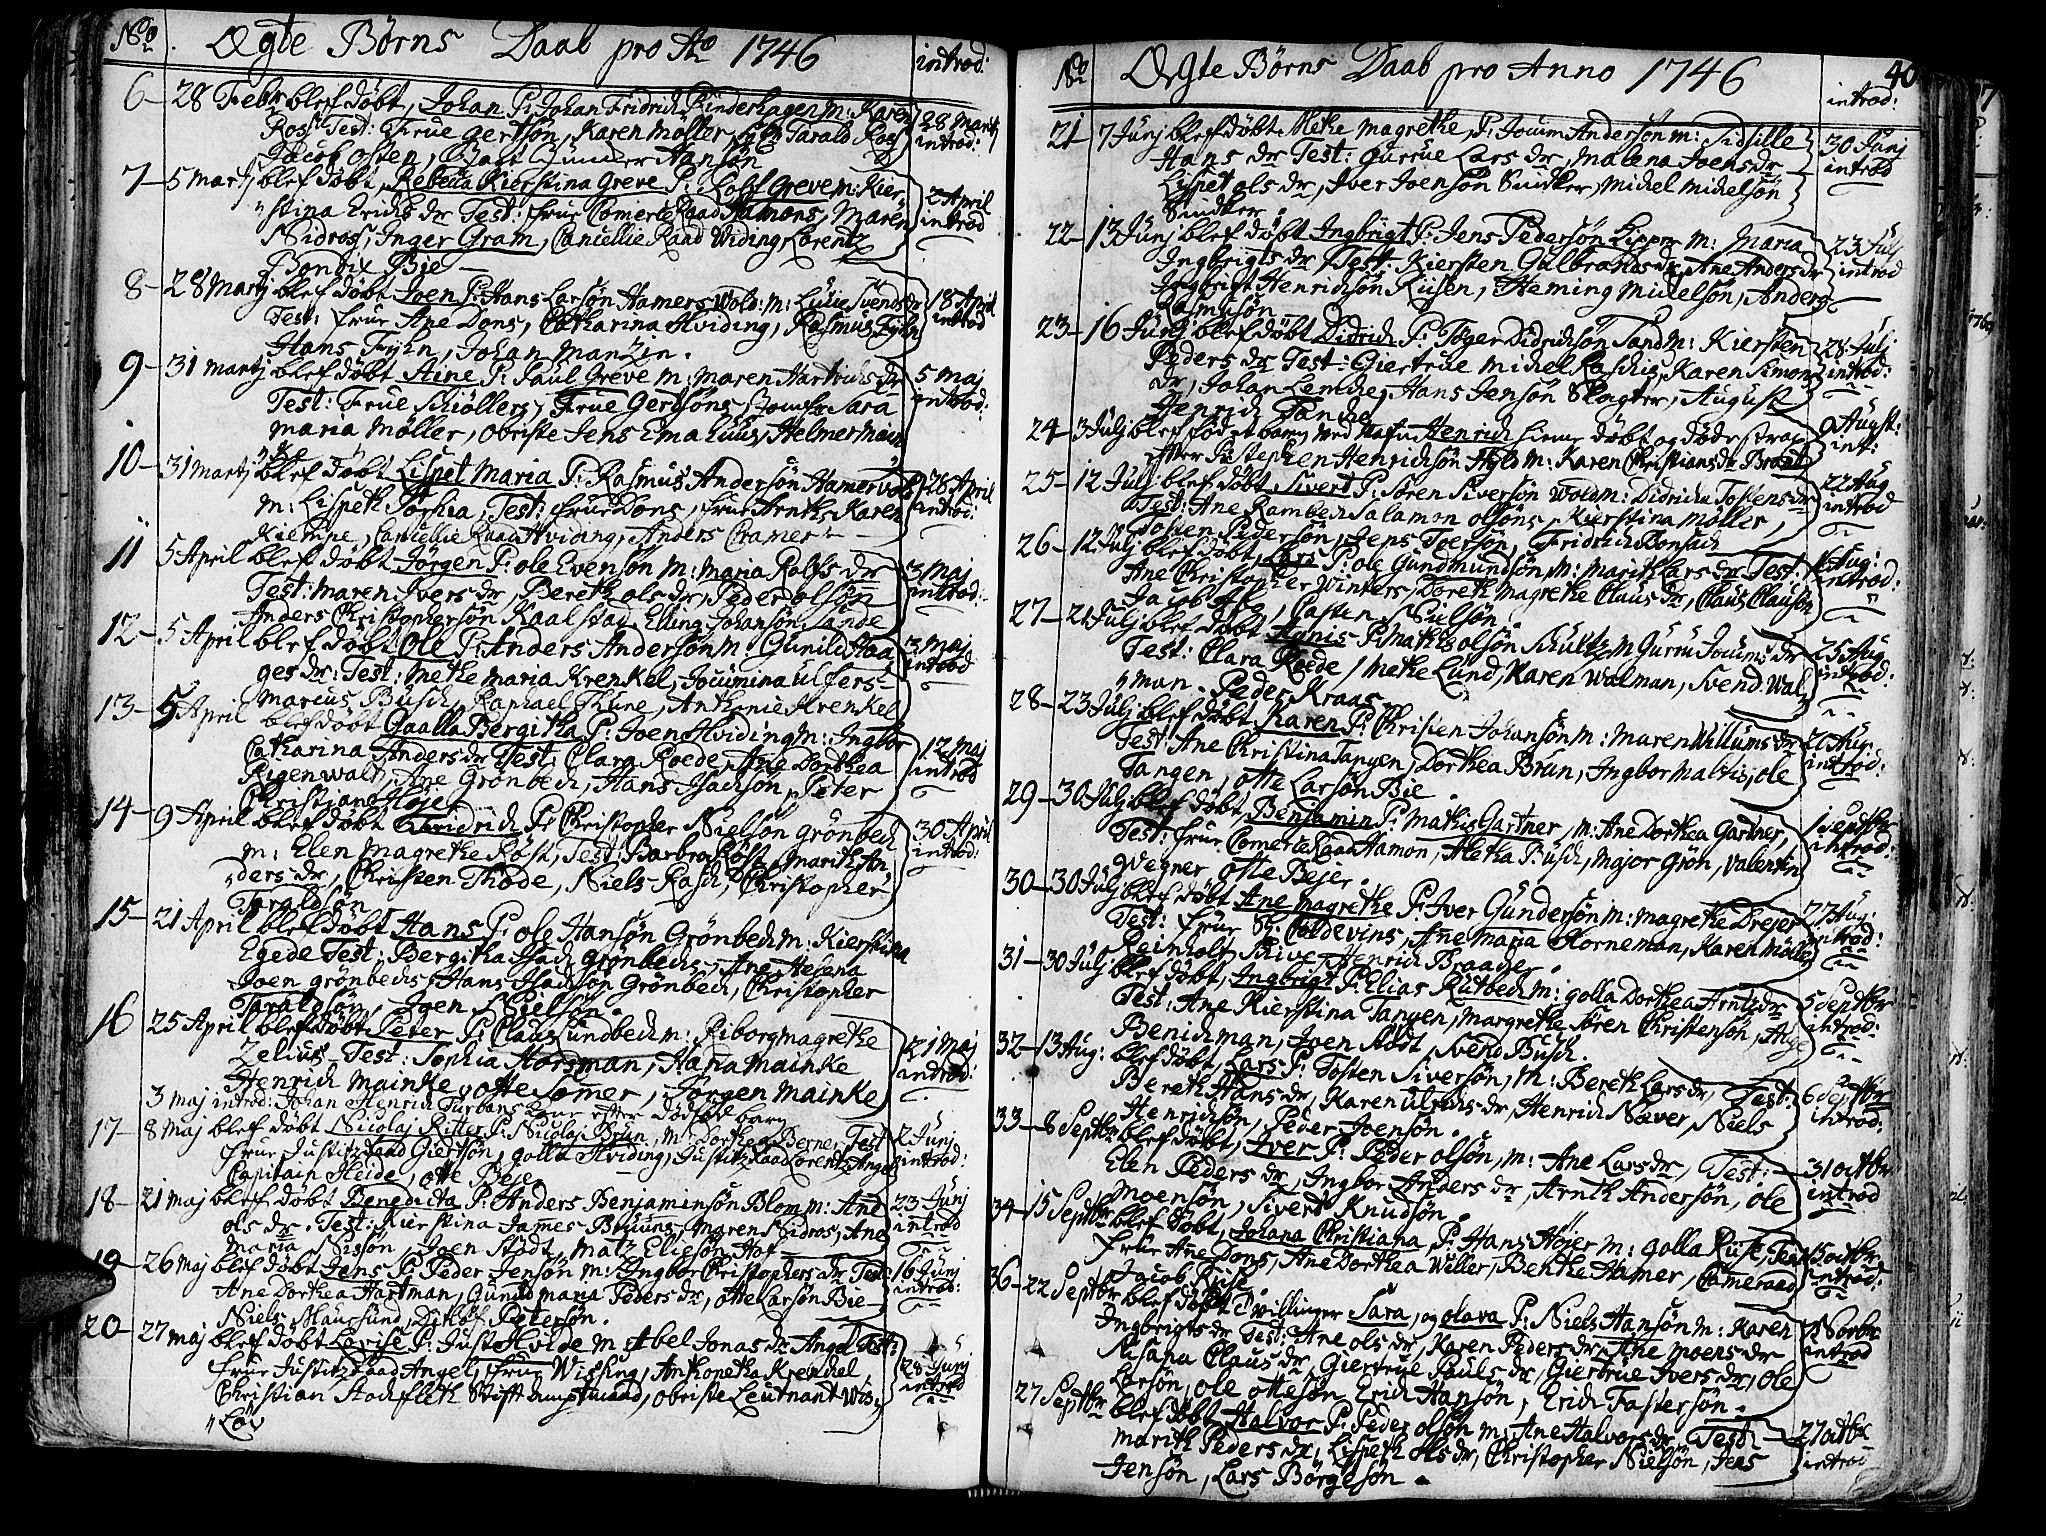 No. Ægte Börns Daab pro Ao 1746 introd:
6 - 28 Febr blef döbt, Johan P: Johan Fridrich Rinderhagen m: Karen
Ross Test: Frue Gertsön, Karen Möller, Tarald Roos
Jacob Osten, Gunner Hansön
28 Martj introd:
7 - 5 Martj blef döbt, Rebecca Kierstina Greve P: Rolf Greve m: Kier-
stina Erichs dr Test: Frue Comerce Raad Hamons, Maren
Nidros, Inger Gram, Cancellie Raad Widing, Lorentz
Bondix Bie
2 April introd
8 - 28 Martj blef döbt Joen P: Hans Larsön Hamers Wold: m: Lucie Svends dr
Test: frue Ane Dons, Catharina Hviding, Rasmus Fyhn
Hans Fyhn, Johan Manzin.
18 April introd
9 - 31 martj blef döbt Aine P: Paul Greve m: Maren Hartvichs dr
Test: Frue Schiöllers, Frue Gertsöns, Sara
Maria Möller, Obriste Jens Emahuus, Helmer Main
5 Maj introd:
10 - 31 Martj blef döbt Lispet Maria P: Rasmus Andersön Hamervold
m: Lispeth Sophia, Test: Frue Dons, Frue Arnths, Karen
Kiempe, Cancellie Raad Hviding, Anders Cramer
28 April introd:
11 5 April blef döbt Jörgen P: Ole Evensön m: Maria Rolfs dr
Test: Maren Ivers dr, Bereth Ols dr, Peder Olsön
Anders Christophersön Kaalstad, Elling Johansön Sande
3 Maj introd:
12 - 5 April blef döbt Ole P: Anders Andersön m: Gunild Haa
ges dr: Test: Methe Maria Krenkel, Jocumina Ulfers-
Marcus Busch, Raphael Thune, Anthonie Krenkel
3 Maj introd
13 - 5 April blef döbt Gaalla Bergitha P: Joen Hviding m: Ingbor
Catharina Anders dr Test: Clara Roede, Ane Dorthea
Rigenwald, Ane Grönbech, Hans Isachsön, Peter
Christian Höjer
12 Maj introd
14 - 9 April blef döbt Fridrich P: Christopher Nielsön Grönbech
m: Elen Magrethe Röst, Test: Barbro Röst, Marith An-
ders dr, Christen Thode, Niels Rasch, Christopher
Taraldsön
30 April introd:
15 - 21 April blef döbt Hans P: Ole Hansön Grönbech m: Kierstina
Egede Test: Bergitha Isach Grönbechs, Ane Helena
Joen Grönbechs, Hans Isachsön Grönbech, Christopher
Taraldsön, Joen Nielsön.
16 25 April blef döbt Peter P: Claus Lundbech m: Riborg Magrethe
Zelius - Test: Sophia Horsman, Hana Mainke
Henrich Mainke, Otte Sömer, Jörgen Mainke
21 Maj introd:
3 Maj introd: Johan Henrich Turbans Kone efter dödföd barn
17 - 8 Maj blef döbt Nicolaj Ritter P: Nicolaj Brun, m: Dorthea Berner Test
frue Justitz Raad Giertsön, Golla Hviding, Justitz Raad Lorentz Angel
Capitain Heide, Otte Beje.
2 Junj introd:
18 - 21 Maj blef döbt Benedicta P: Anders Benjaminsön Blom m: Ane
Ols dr. Test: Kierstina James Bruuns, Maren Nidros, Ane
Maria Nissön, Joen Stödt, Matz Eliesön Hof
23 Junj introd
19 - 26 Maj blef döbt Jens P: Peder Jensön m: Ingbor Christophers dr Test:
Ane Dorthea Hartman, Gunild Maria Peders dr, Otte Larsön Bie
Niels Maursund, Ditlof Petersön.
16 Junj introd:
20 - 27 Maj blef döbt Lovise P: Just Hvide m: Abel Jonas dr Angel Test:
frue Justitz Raad Angel, frue Wissing, Anthonetha Krenchel
Christian Stochfleth Stiftamptmand, Obriste Leutnant Wis
Löv
28 Junj introd
No Ægte Börns Daab pro Anno 1746 introd: 40
21 7 Junj blef döbt Methe Magrethe, P: Jocum Andersön m: Sidsille
Hans dr Test: Gurrue Lars dr, Malena Joens dr
Lispet Ols dr, Iver Joensön Snidker, Michel Michelsön
Snidker.
30 Junj introd
22 - 13 Junj blef döbt Ingbrigt P: Jens Pedersön m: Maria
Ingbrigts dr Test: Kiersten Gulbrands dr, Ane Anders dr
Ingbrigt Henrichsön Rusen, Heming Michelsön, Anders
Rasmusön
23 Julj introd
23 - 16 Junj blef döbt Didrich P: Töger Didrichsön Sand m: Kiersten
Peders dr Test: Giertrue Michel Raschis, Karen Simons
dr, Johan Lemche, Hans Jensön Slagter, August
Henrich Tanche
28 Julj introd:
24 - 3 Julj blef föd et barn ved Nafn Henrich hieme döbt og döde strax
efter P: Stephen Henrichsön Hyls m: Karen Christians dr Brant
9 Augst: int:
25 - 12 Julj blef döbt Sivert P: Sören Siversön Wold m: Didricha Tostens dr
Test: Ane Rambech Salamon Olsöns, Kierstina Möller,
Tosten Pedersön, Jens Toersön, Fridrich Bonsach
22 Aug introd
26 - 12 Julj blef döbt, Lars P: Ole Gundmundsön, m: Marith Lars dr Test:
Ane Christopher Winters, Doreth Magrethe Claus dr, Claus Clausön
Jacob, Casten Nielsön.
Aug: introd:
27 - 21 Julj blef döbt Hanis P: Mathis Olsön Schultz m: Gurru Jocums dr
Test: Clara Roede, Methe Lund, Karen Walman, Svend Wal
man. Peder Kraas.
25 Aug introd:
28 - 23 Julj blef döbt Karen P: Christen Johansön m: Maren Willums dr
Test: Ane Christina Tangen, Dorthea Brun, Ingbor Malvis, Ole
Tangen, Otte Larsön Bie.
21 Aug introd:
29 - 30 Julj blef döbt, Benjamin P: Mathis Gartner, m: Ane Dorthea Gartner,
Test: Frue Comerce Raad Hamon, Aletha Busch, Major Grön, Valentin
Wegner, Otte Bejer.
1 Septbr introd:
30 - 30 Julj blef döbt, Ane Magrethe P: Iver Gundersön m: Magrethe Drejer
Test: Frue Coldevins, Ane Maria Horneman, Karen Möller
Reinholt Thive, Henrich Braader.
27 Aug: introd:
31 - 30 Julj blef döbt, Ingbrigt P: Elias Rutbech m: Golla Dorthea Arntz dr
Test: Ane Kierstina Tangen, Margrethe Sören Christensön, Auge
Benichman, Joen Stödt, Svend Busch.
5 Septbr introd:
32 - 13 Aug: blef döbt, Lars P: Tosten Siversön, m: Bereth Lars dr, Test:
Bereth Hans dr, Karen Ulrichs dr, Henrich Næver, Niels
Henrichsön, Peder Joensön.
6 Septbr introd:
33 - 8 Septbr blef döbt, Iver P: Peder Olsön, m: Ane Lars dr, Test:
Elen Peders dr, Ingbor Anders dr, Arnth Andersön, Ole
Moensön, Sivert Knudsön.
31 octbr introd
34 - 15 Septbr blef döbt, Johana Christiana P: Hans Höjer m: Golla Ruse, Test
Frue Ane Dons, Ane Dorthea Weller, Benthe Hamer, Cameraad
Jacob Ruse.
15 octbr introd:
36 - 22 Septbr blef döbt Tvillinger Sara, og Olava P: Niels Hansön m: Karen
Ingbrigts dr Test: Ane Ols dr, Karen Peders dr, Ane Moens dr
Susana Claus dr, Giertrue Pauls dr, Giertrue Ivers dr, Ole
Larsön, Ole Ottesön, Erich Hansön, Erich Fastersön.
Novbr introd
27 Septbr blef döbt, Halvor P: Peder Olsön m: Ane Halvors dr, Test
Marith Peders dr, Lispeth Ols dr, Christopher Nielsön, Jens
Jensön, Lars Börgesön.
27 octbr introd